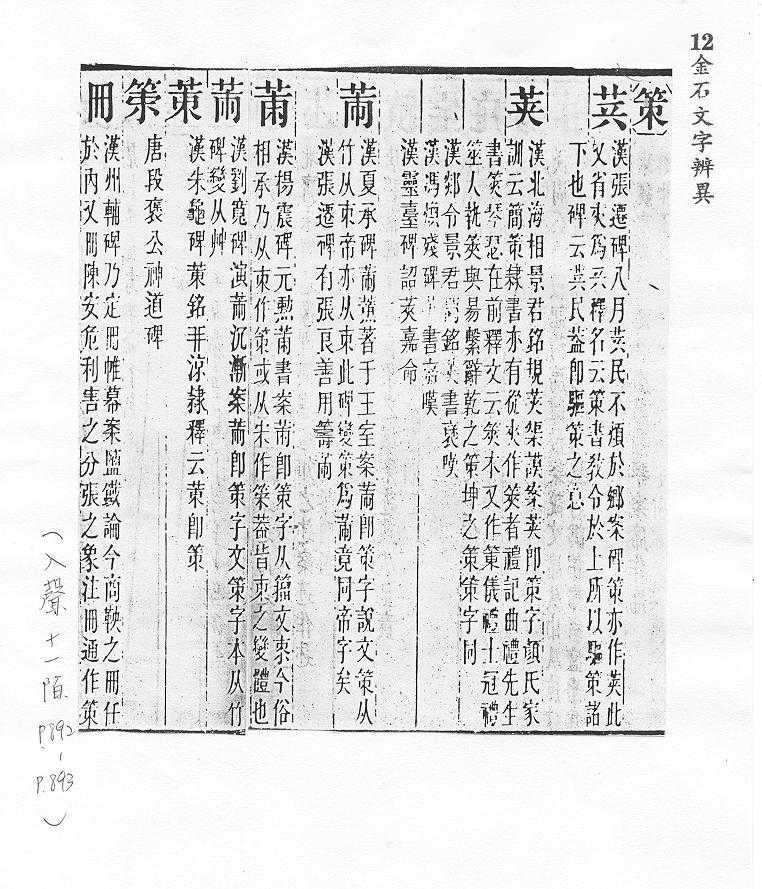 12 金石文字辨異
策
荚
漢張遷碑八月荚民不煩於鄉案碑策亦作荚此
又省夾為荚釋名云策書教令於上所以驅策諸
下也碑云荚民葢即驅策之意
莢
漢北海相景君銘規莢榘謨案莢即策字顏氏家
訓云簡策隸書亦有從夾作筴者禮記曲禮先生
書筴琴瑟在前釋文云筴本又作策儀禮士冠禮
筮人執筴與易繫辭乾之策坤之策策字同
漢郯令景君銘莢書襃嘆
漢馮焕殘碑書嘆
漢靈臺碑詔莢嘉命
萷
漢夏承碑萷薰著于王室案萷即策字說文策从
竹从朿帝亦从朿此碑變策為萷竟同帝字矣
漢張遷碑有張良善用籌萷
莆
漢楊震碑元勲莆書案莆即策字从籀文朿今俗
相承乃从朿作策或从朱作筞葢皆朿之變體也
萷
漢劉寬碑演萷沉漸案萷即策字文策字本从竹
碑變从艸
茦
漢朱龜碑茦銘幷涼隸釋云茦即策
筞
唐段褒公神道碑
冊
漢州輔碑乃定冊帷幕案鹽鐵論今商鞅之冊任
於內又冊陳安危利害之分張之象注冊通作策
(入聲十一陌 P.892-P.893)